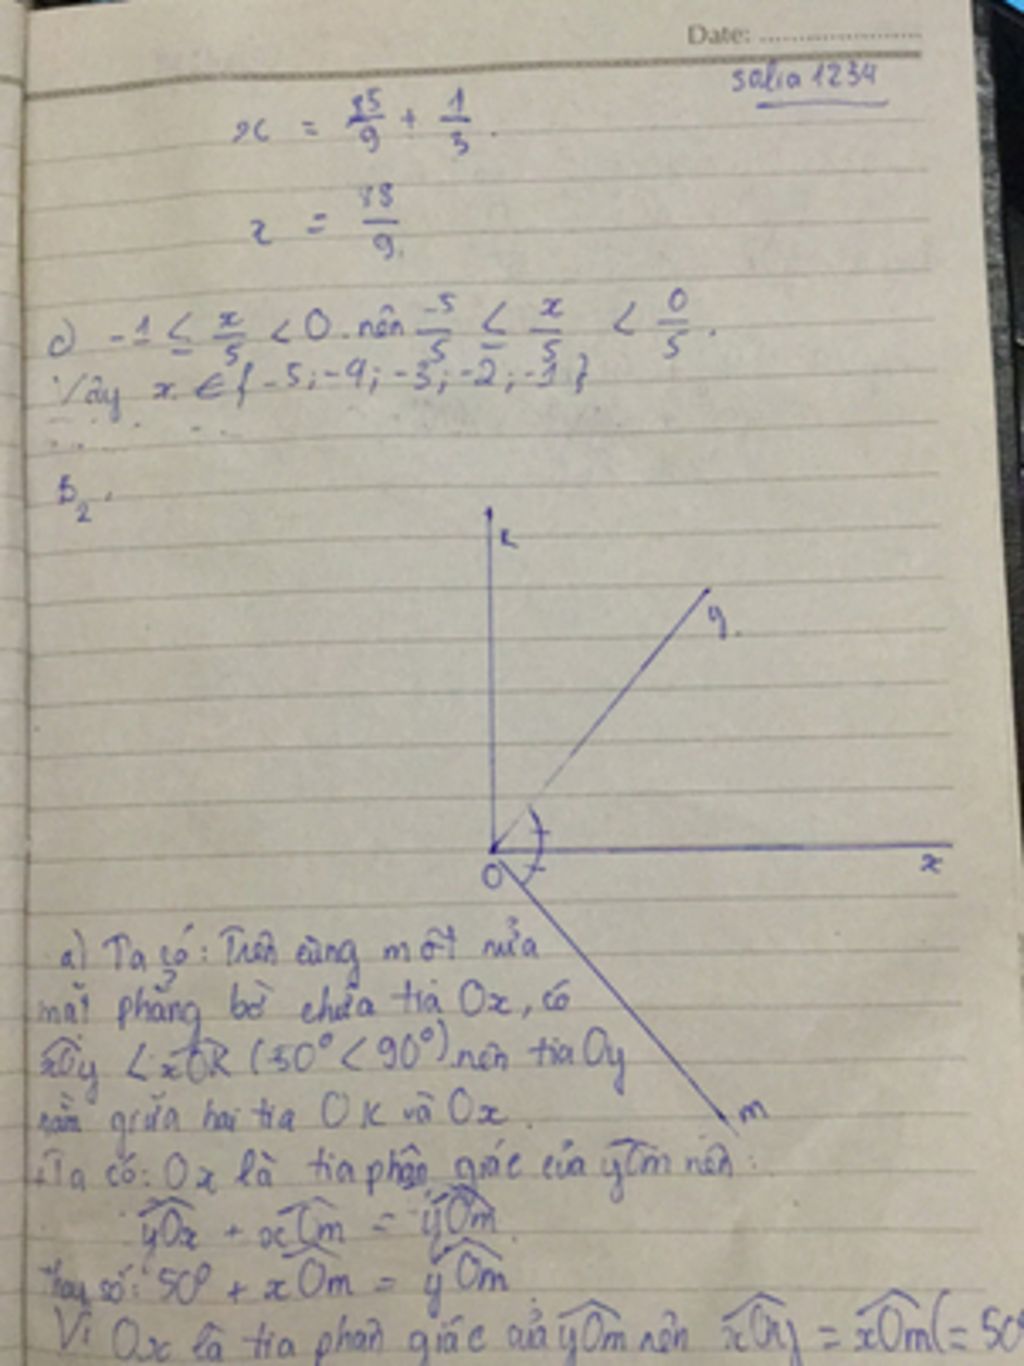 Date:
salia 1234
x = 85/9 + 1/3.
x = 88/9.
c) -1 ≤ x/5 < 0 nên -5/5 ≤ x/5 < 0/5.
Vậy x ∈ { -5; -4; -3; -2; -1 }
B2.
k
y.
O
x
a) Ta có: Trên cùng một nửa
mặt phẳng bờ chứa tia Ox, có
xÔy < xÔk (50° < 90°) nên tia Oy
nằm giữa hai tia Ok và Ox.
m
Ta có: Ox là tia phân giác của yÔm nên:
yÔx + xÔm = yÔm
Thay số: 50° + xÔm = yÔm
Vì Ox là tia phân giác của yÔm nên xÔy = xÔm (= 50°